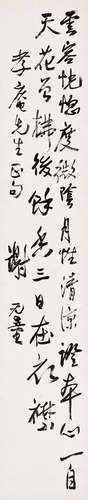 雲容恍惚度微陰月性清涼證本心一自
天花曾拂後餘香三日在衣襟
孝庵先生正句
謝无量